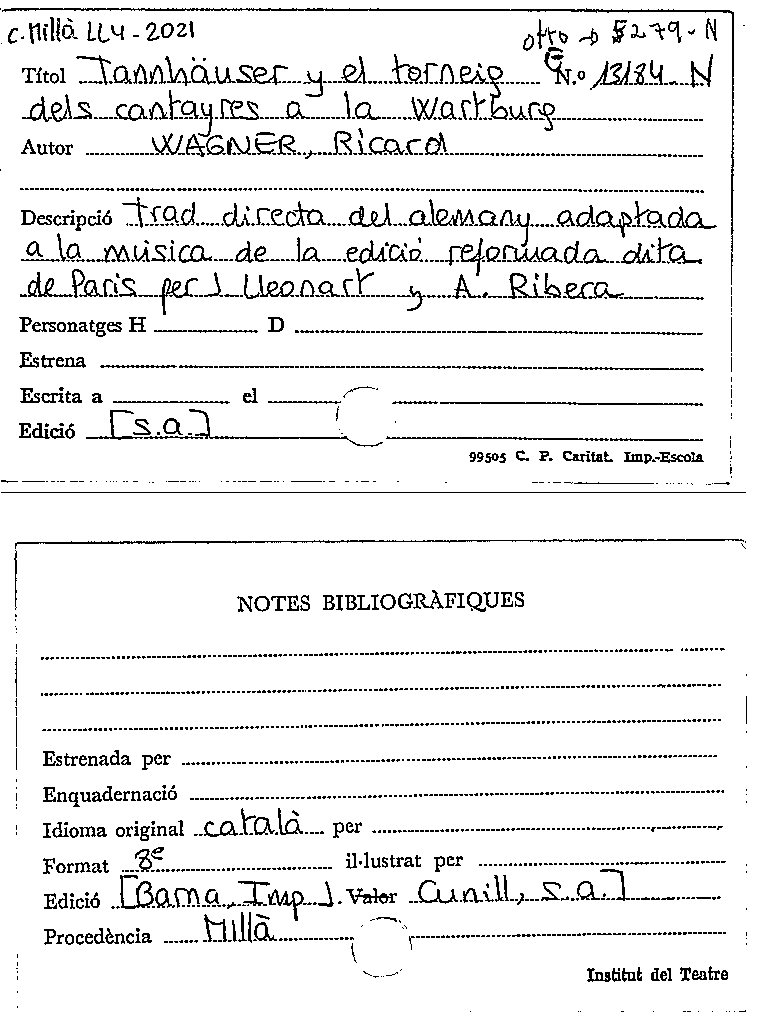 C. Millà LL4-2021
otro → 5279-N
Títol Tannhäuser y el torneig N.º 13184 N
dels cantayres a la Wartburg
Autor WAGNER, Ricard
Descripció Trad directa del alemany adaptada
a la música de la edició reformada dita
de Paris per J Lleonart y A. Ribera
Personatges H D
Estrena
Escrita a el
Edició [s.a.]
99505 C. P. Caritat. Imp.-Escola
NOTES BIBLIOGRÀFIQUES
Estrenada per
Enquadernació
Idioma original català per
Format 8e il·lustrat per
Edició [Barna, Imp J. Valor Cunill, s.a.]
Procedència Millà
Institut del Teatre